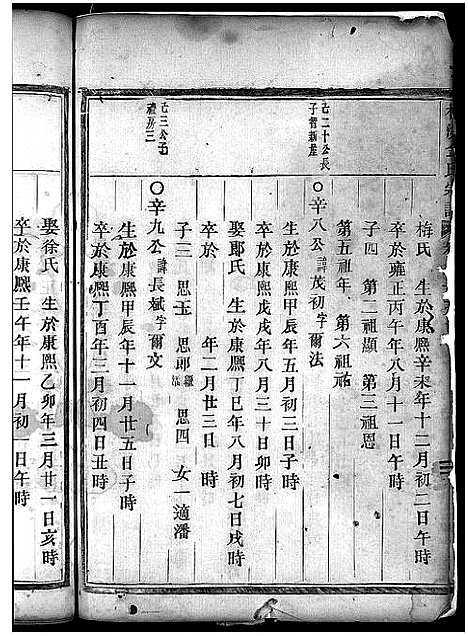 梅氏 生於康熙辛未年十二月初二日午時
卒於雍正丙午年八月十一日午時
子四 第二祖顯 第三祖恩
第五祖年 第六祖祐
○辛八公諱茂初字爾法
生於康熙辛亥年五月初二日子時
卒於康熙戊戌年八月三十日卯時
娶鄢氏 生於康熙丁巳年八月初七日戌時
卒於 年二月廿三日 時
子三 思玉 思耶 思四 女一適潘
○辛九公諱長斌字爾文
生於康熙甲辰年十一月廿五日子時
卒於康熙丁酉年三月初四日丑時
娶徐氏 生於康熙乙卯年三月廿一日亥時
卒於康熙壬午年十一月初一日午時
二十公長
子智新產
三公子
禮房三